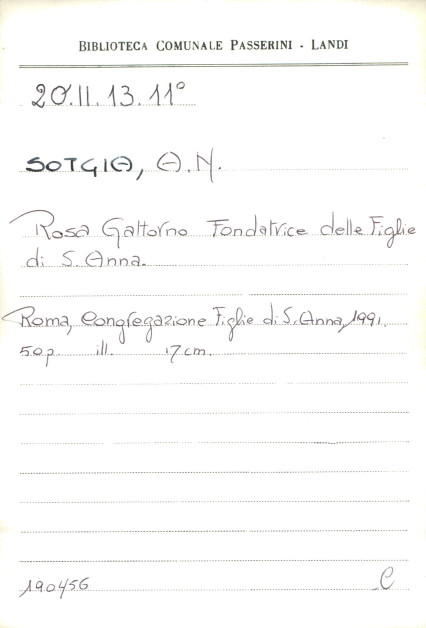 BIBLIOTECA COMUNALE PASSERINI - LANDI
20.II.13.11°
SOTGIA, A.M.
Rosa Gattorno Fondatrice delle Figlie
di S. Anna.
Roma, Congregazione Figlie di S. Anna, 1991.
50p. ill. 17 cm.
190456 C